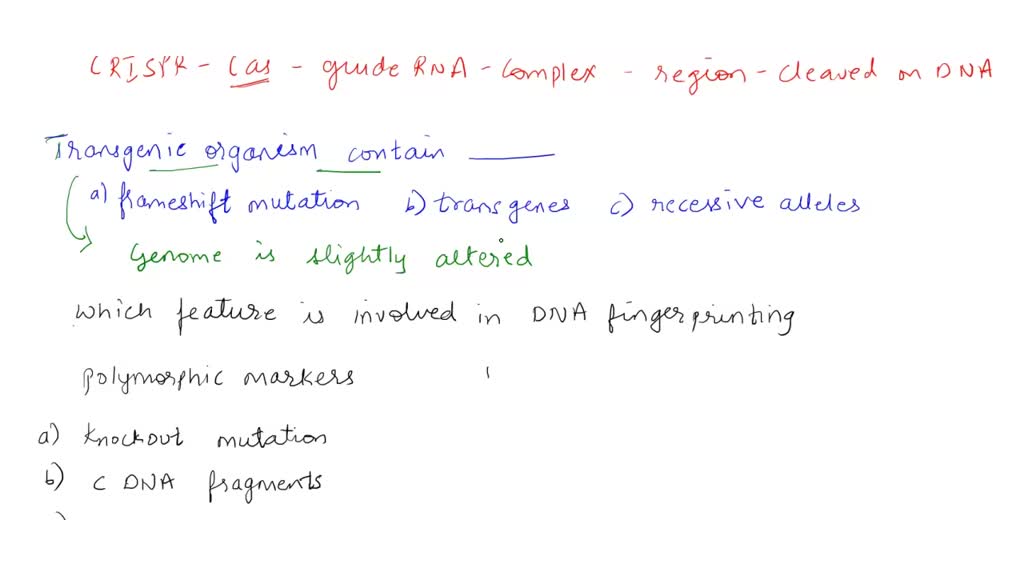 CRISPR - Cas - guide RNA - Complex - region - cleaved on DNA
Transgenic organism contain ______
a) frameshift mutation b) transgenes c) recessive alleles
Genome is slightly altered
which feature is involved in DNA fingerprinting
polymorphic markers
a) Knockout mutation
b) C DNA fragments